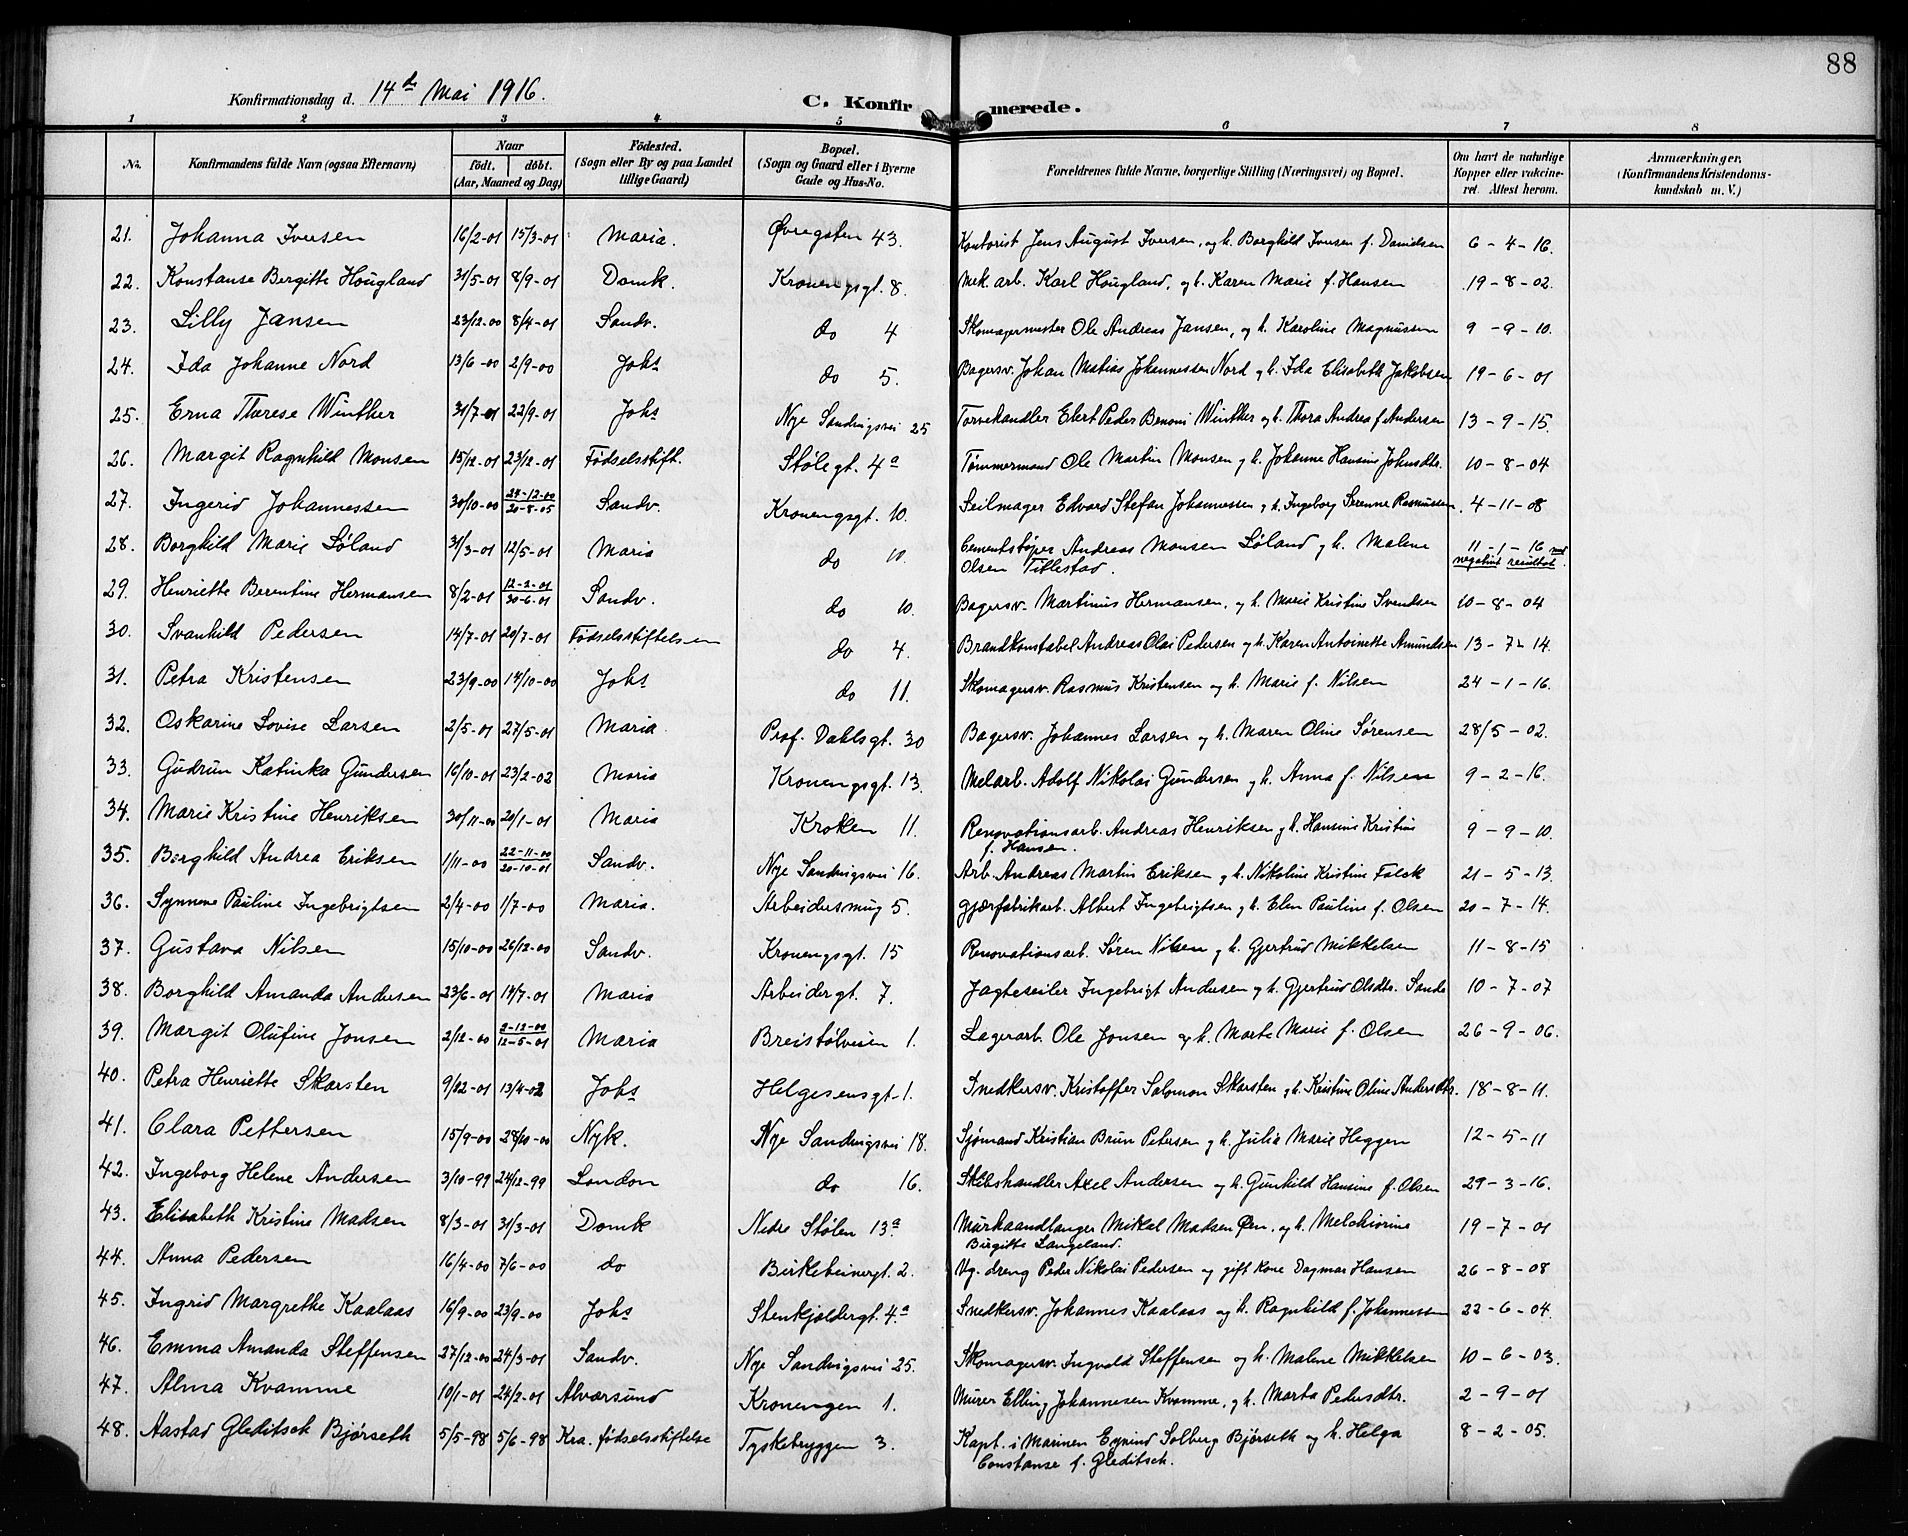 88
Konfirmationsdag d. 14de Mai 1916.
C. Konfir merede.
1 2 3 4 5 6 7 8
No. Konfirmandens fulde Navn (ogsaa Efternavn) Naar født. døbt. (Aar, Maaned og Dag) Fødested. (Sogn eller By og paa Landet tillige Gaard) Bopæl. (Sogn og Gaard eller i Byerne Gade og Hus-No. Forældrenes fulde Navne, borgerlige Stilling (Næringsvei) og Bopæl. Om havt de naturlige Kopper eller vakcineret. Attest herom. Anmærkninger. (Konfirmandens Kristendomskundskab m. V.)
21. Johanna Iversen 16/2-01 15/3-01 Maria. Øvregaten 43. Kontorist Jens August Iversen, og h. Borghild Iversen f. Danielsen 6-4-16.
22. Konstanse Bergitte Hougland 31/5-01 8/9-01 Domk. Kronengsgt. 8. Mek. arb. Karl Hougland, og h. Karen Marie f. Hansen 19-8-02.
23. Lilly Jansen 23/12-00 8/4-01 Sandv. do 4 Skomagermester Ole Andreas Jansen, og h. Karoline Magnussen 9-9-10.
24. Ida Johanne Nord 13/6-00 2/9-00 Johs do 5. Bagersv. Johan Matias Johannessen Nord og h. Ida Elisabeth Jakobsen 19-6-01
25. Erna Therese Winther 31/7-01 22/9-01 Johs Nye Sandvigsvei 25 Torvehandler Elert Peder Benoni Winther og h. Thora Andrea f. Andersen 13-9-15.
26. Margit Ragnhild Monsen 15/12-01 23/12-01 Fødselsstift. Stølegt. 4a Tømmermand Ole Martin Monsen og h. Johanne Hansine Johnsdtr. 10-8-04
27. Ingerid Johannessen 30/10-00 24-12-00 20-8-05 Sandv. Kronengsgt. 10. Seilmager Edvard Stefan Johannessen og h. Ingeborg Serenne Rasmussen. 4-11-08
28. Borghild Marie Løland 31/3-01 12/5-01 Maria do 10. Cementstøper Andreas Monsen Løland og h. Malene Olsen Titlestad. 11-1-16 med negativt resultat.
29. Henriette Berentine Hermansen 8/2-01 12-2-01 30-6-01 Sandv. do 10. Bagersv. Martinus Hermansen, og h. Marie Kristine Svendsen 10-8-04
30. Svanhild Pedersen 14/7-01 20/7-01 Fødselsstiftelsen do 4. Brandkonstabel Andreas Olai Pedersen og h. Karen Antoinette Amundsen 13-7-14.
31. Petra Kristensen 23/9-00 14/10-00 Johs do 11. Skomagersv. Rasmus Kristensen og h. Marie f. Nilsen 24-1-16.
32. Oskarine Lovise Larsen 2/5-01 27/5-01 Maria. Prof. Dahlsgt. 30 Bagersv. Johannes Larsen og h. Maren Oline Sørensen 28/5-02.
33. Gudrun Katinka Gundersen 16/10-01 23/2-02 Maria Kronengsgt. 13. Melarb. Adolf Nikolai Gundersen og h. Anna f. Nilsen 9-2-16.
34. Marie Kristine Henriksen 30/11-00 20/1-01 Maria Kroken 11. Renovationsarb. Andreas Henriksen og h. Hansine Kristine f. Hansen. 9-9-10.
35. Borghild Andrea Eriksen 1/11-00 22-11-00 20-10-01 Sandv. Nye Sandvigsvei 16. Arb. Andreas Martin Eriksen og h. Nikoline Kristine Falck 21-5-13.
36. Synneve Pauline Ingebrigtsen 2/4-00 1/7-00 Maria. Arbeidersmug 5. Gjærfabrikarb. Albert Ingebrigtsen og h. Elen Pauline f. Olsen 20-7-14.
37. Gustava Nilsen 15/10-00 26/12-00 Sandv. Kronengsgt. 15 Renovationsarb. Søren Nilsen og h. Gjertrud Mikkelsen 11-8-15
38. Borghild Amanda Andersen 23/6-01 14/7-01 Maria Arbeidergt. 7. Jagteseiler Ingebrigt Andersen og h. Gjertrud Olsdtr. Sande 10-7-07
39. Margit Olufine Jonsen 2/12-00 2-12-00 12-5-01 Maria Breistølveien 1. Lagerarb. Ole Jonsen og h. Marte Marie f. Olsen 26-9-06.
40. Petra Henriette Skarsten 9/12-01 13/4-02 Johs Helgesensgt. 1. Snedkersv. Kristoffer Salomon Skarsten og h. Kristine Oline Andersdtr. 18-8-11.
41. Clara Pettersen 15/9-00 28/10-00 Nyk. Nye Sandvigsvei 18. Sjømand Kristian Brun Petersen og h. Julie Marie Heggen 12-5-11
42. Ingeborg Helene Andersen 3/10-99 24/12-99 London do 16. Skibshandler Axel Andersen og h. Gunhild Hansine f. Olsen 29-3-16.
43. Elisabeth Kristine Madsen 8/3-01 31/3-01 Domk Nedre Stølen 13a Murhaandlanger Mikal Madsen Øen, og h. Melchiorine Birgitte Langeland. 19-7-01
44. Anna Pedersen 16/4-00 7/6-00 do Birkebeinergt. 2. Vg. dreng Peder Nikolai Pedersen og gift Kone Dagmar Hansen 26-8-08
45. Ingrid Margrethe Kaalaas 16/9-00 23/9-00 Johs Stenkjeldergt. 4a Snedkersv. Johannes Kaalaas og h. Ragnhild f. Johannessen 22-6-04.
46. Emma Amanda Steffensen 27/12-00 24/3-01 Sandv. Nye Sandvigsvei 25. Skomagersv. Ingvald Steffensen og h. Malene Mikkelsen 10-6-03.
47. Alma Kvamme 10/1-01 24/2-01 Alversund Kronengen 1. Murer Elling Johannesen Kvamme, og h. Marta Pedersdtr. 2-9-01
48. Aastad Gleditsch Bjørseth 5/5-98 5/6-98 Kra. fødselsstiftelse Tyskebryggen 3. Kapt. i Marinen Eyvind Solberg Bjørseth og h. Helga Constanse f. Gleditsch. 8-2-05.